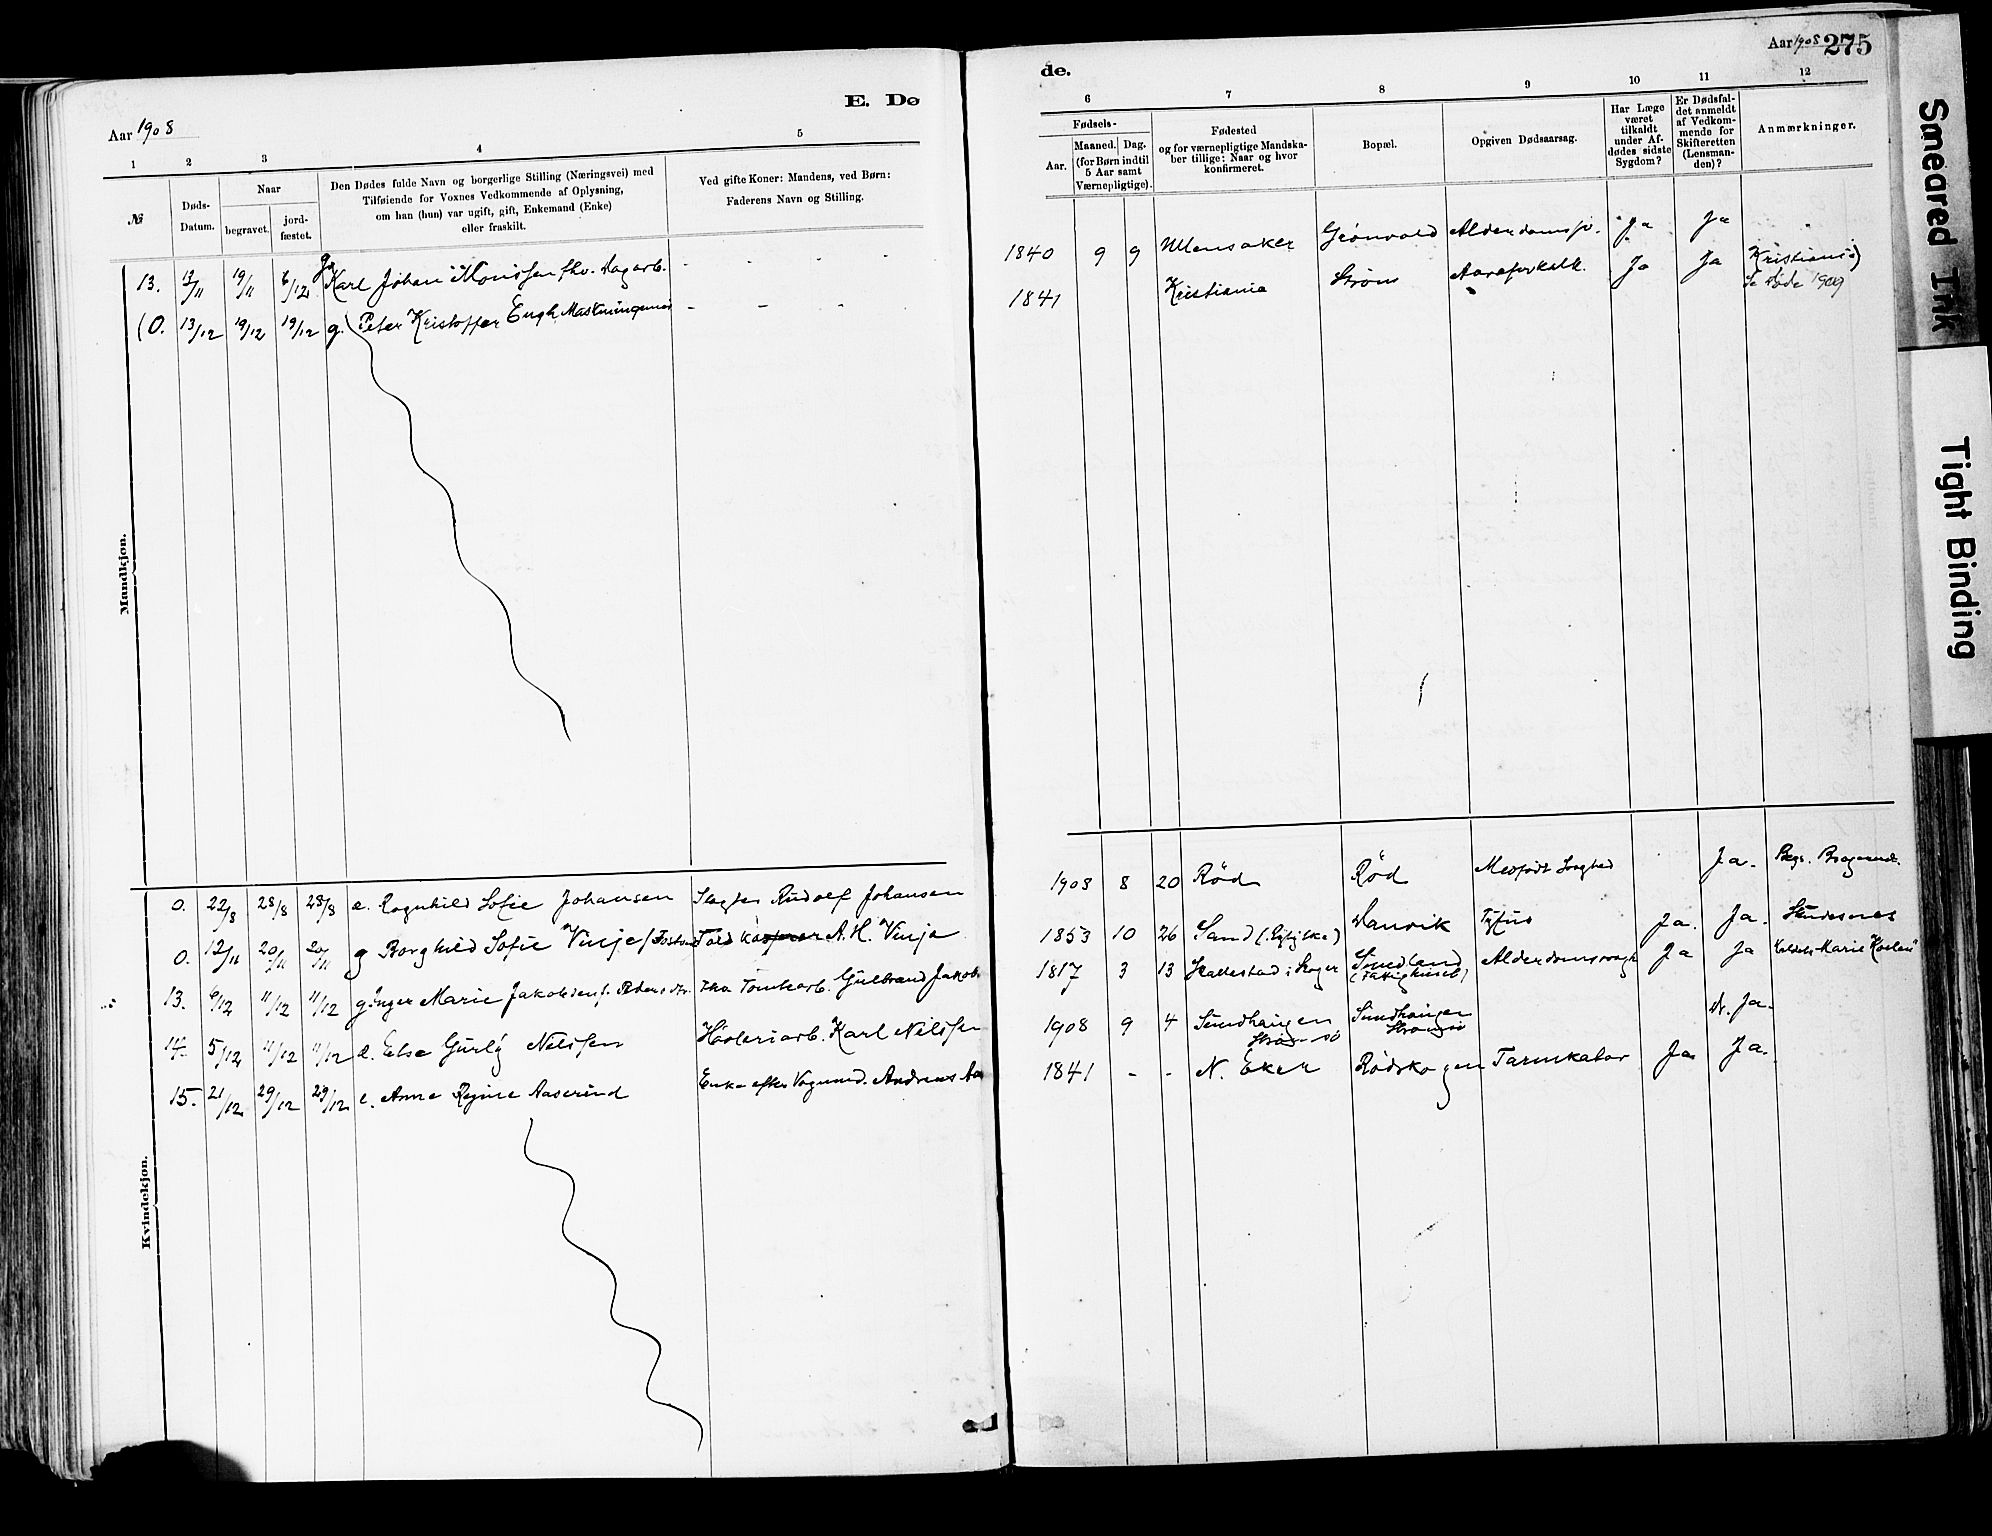 Aar 1908
E. Dø
1 2 3 4 5
№
Døds-Datum.
Naar
begravet.
jord-fæstet.
Den Dødes fulde Navn og borgerlige Stilling (Næringsvei) med
Tilføiende for Voxnes Vedkommende af Oplysning,
om han (hun) var ugift, gift, Enkemand (Enke)
eller fraskilt.
Ved gifte Koner: Mandens, ved Børn:
Faderens Navn og Stilling.
Mandkjøn.
13. 19/11 6/12 Karl Johan fhv. Dagarb. - - - -
(0. 13/12 19/12 19/12 g. Peter Kristoffer Engh - - -
Kvindekjøn.
0. 22/8 28/8 28/8 e. Ragnhild Sofie Johansen Rudolf Johansen
0. 12/11 20/11 20/11 g Borghild Sofie Vinje A. H. Vinje
13. 6/12 11/12 11/12 g Inger Marie Jakobsen f. Tomtearb. Gulbrand Jakob
14. 5/12 11/12 11/12 Else Gurly Nilssen Karl Nilssen
15. 21/12 29/12 29/12 e. Anne Regine Aaserud Enke efter Andreas Aas
de.
Aar 1908 275
6 7 8 9 10 11 12
Fødsels-
Aar.
Maaned. Dag.
(for Børn indtil
5 Aar samt
Værnepligtige).
Fødested
og for værnepligtige Mandska-
ber tillige: Naar og hvor
konfirmeret.
Bopæl.
Opgiven Dødsaarsag.
Har Læge
været
tilkaldt
under Af-
dødes sidste
Sygdom?
Er Dødsfal-
det anmeldt
af Vedkom-
mende for
Skifteretten
(Lensman-
den)?
Anmærkninger.
1840 9 9 Ullensaker Grønvold Ja Ja
1841 Kristiania Strøm Aareforkalk. Ja Ja Kristiania)
1909
1908 8 20 Rød Rød Medfødt Svaghed Ja. Begr. Bragernes.
1853 10 26 Sand Danvik Tyfus Ja. Ja. Skudesnes
1817 3 13 Skallestad i Skoger Smedland Alderdomssvagh Ja Ja
(Fattighuset)
1908 9 4 Sundhaugen Sundhaugen Ja.
Strømsø Strømsø
1841 - - N. Eker Rødskogen Tarmkatar Ja Ja.
Smeared Ink
Tight Binding